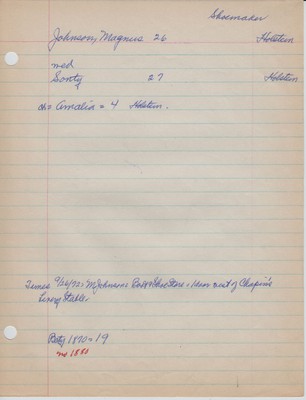 Shoemaker
Johnson, Magnus 26 Holstein
med
Sonty 27 Holstein
ch = Amalia = 4 Holstein.
Times 9/26/72: M Johnson's Boot & Shoe Store - 1 door east of Chapin's
Livery Stable.
Party 1870 = 19
no 1880